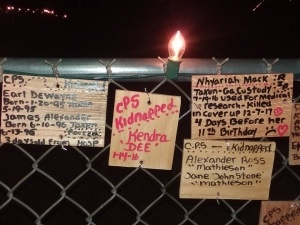 CPS
Earl DeWayne
Born-1-20-95
5-19-95
James Alexander
Born-6-10-96
6-13-96
3 days old From Hosp
CPS
Kidnapped
Kendra
DEE
1-14-16
Nhyriah Mack
Taken-Ga Custody
9-14-16 Used For Medical
research-Killed
In Cover up 12-7-17
4 Days Before Her
11th Birthday
C.P.S Kidnapped
Alexander Ross
"Mathieson"
Jane JohnStone
"Mathieson"
CPS